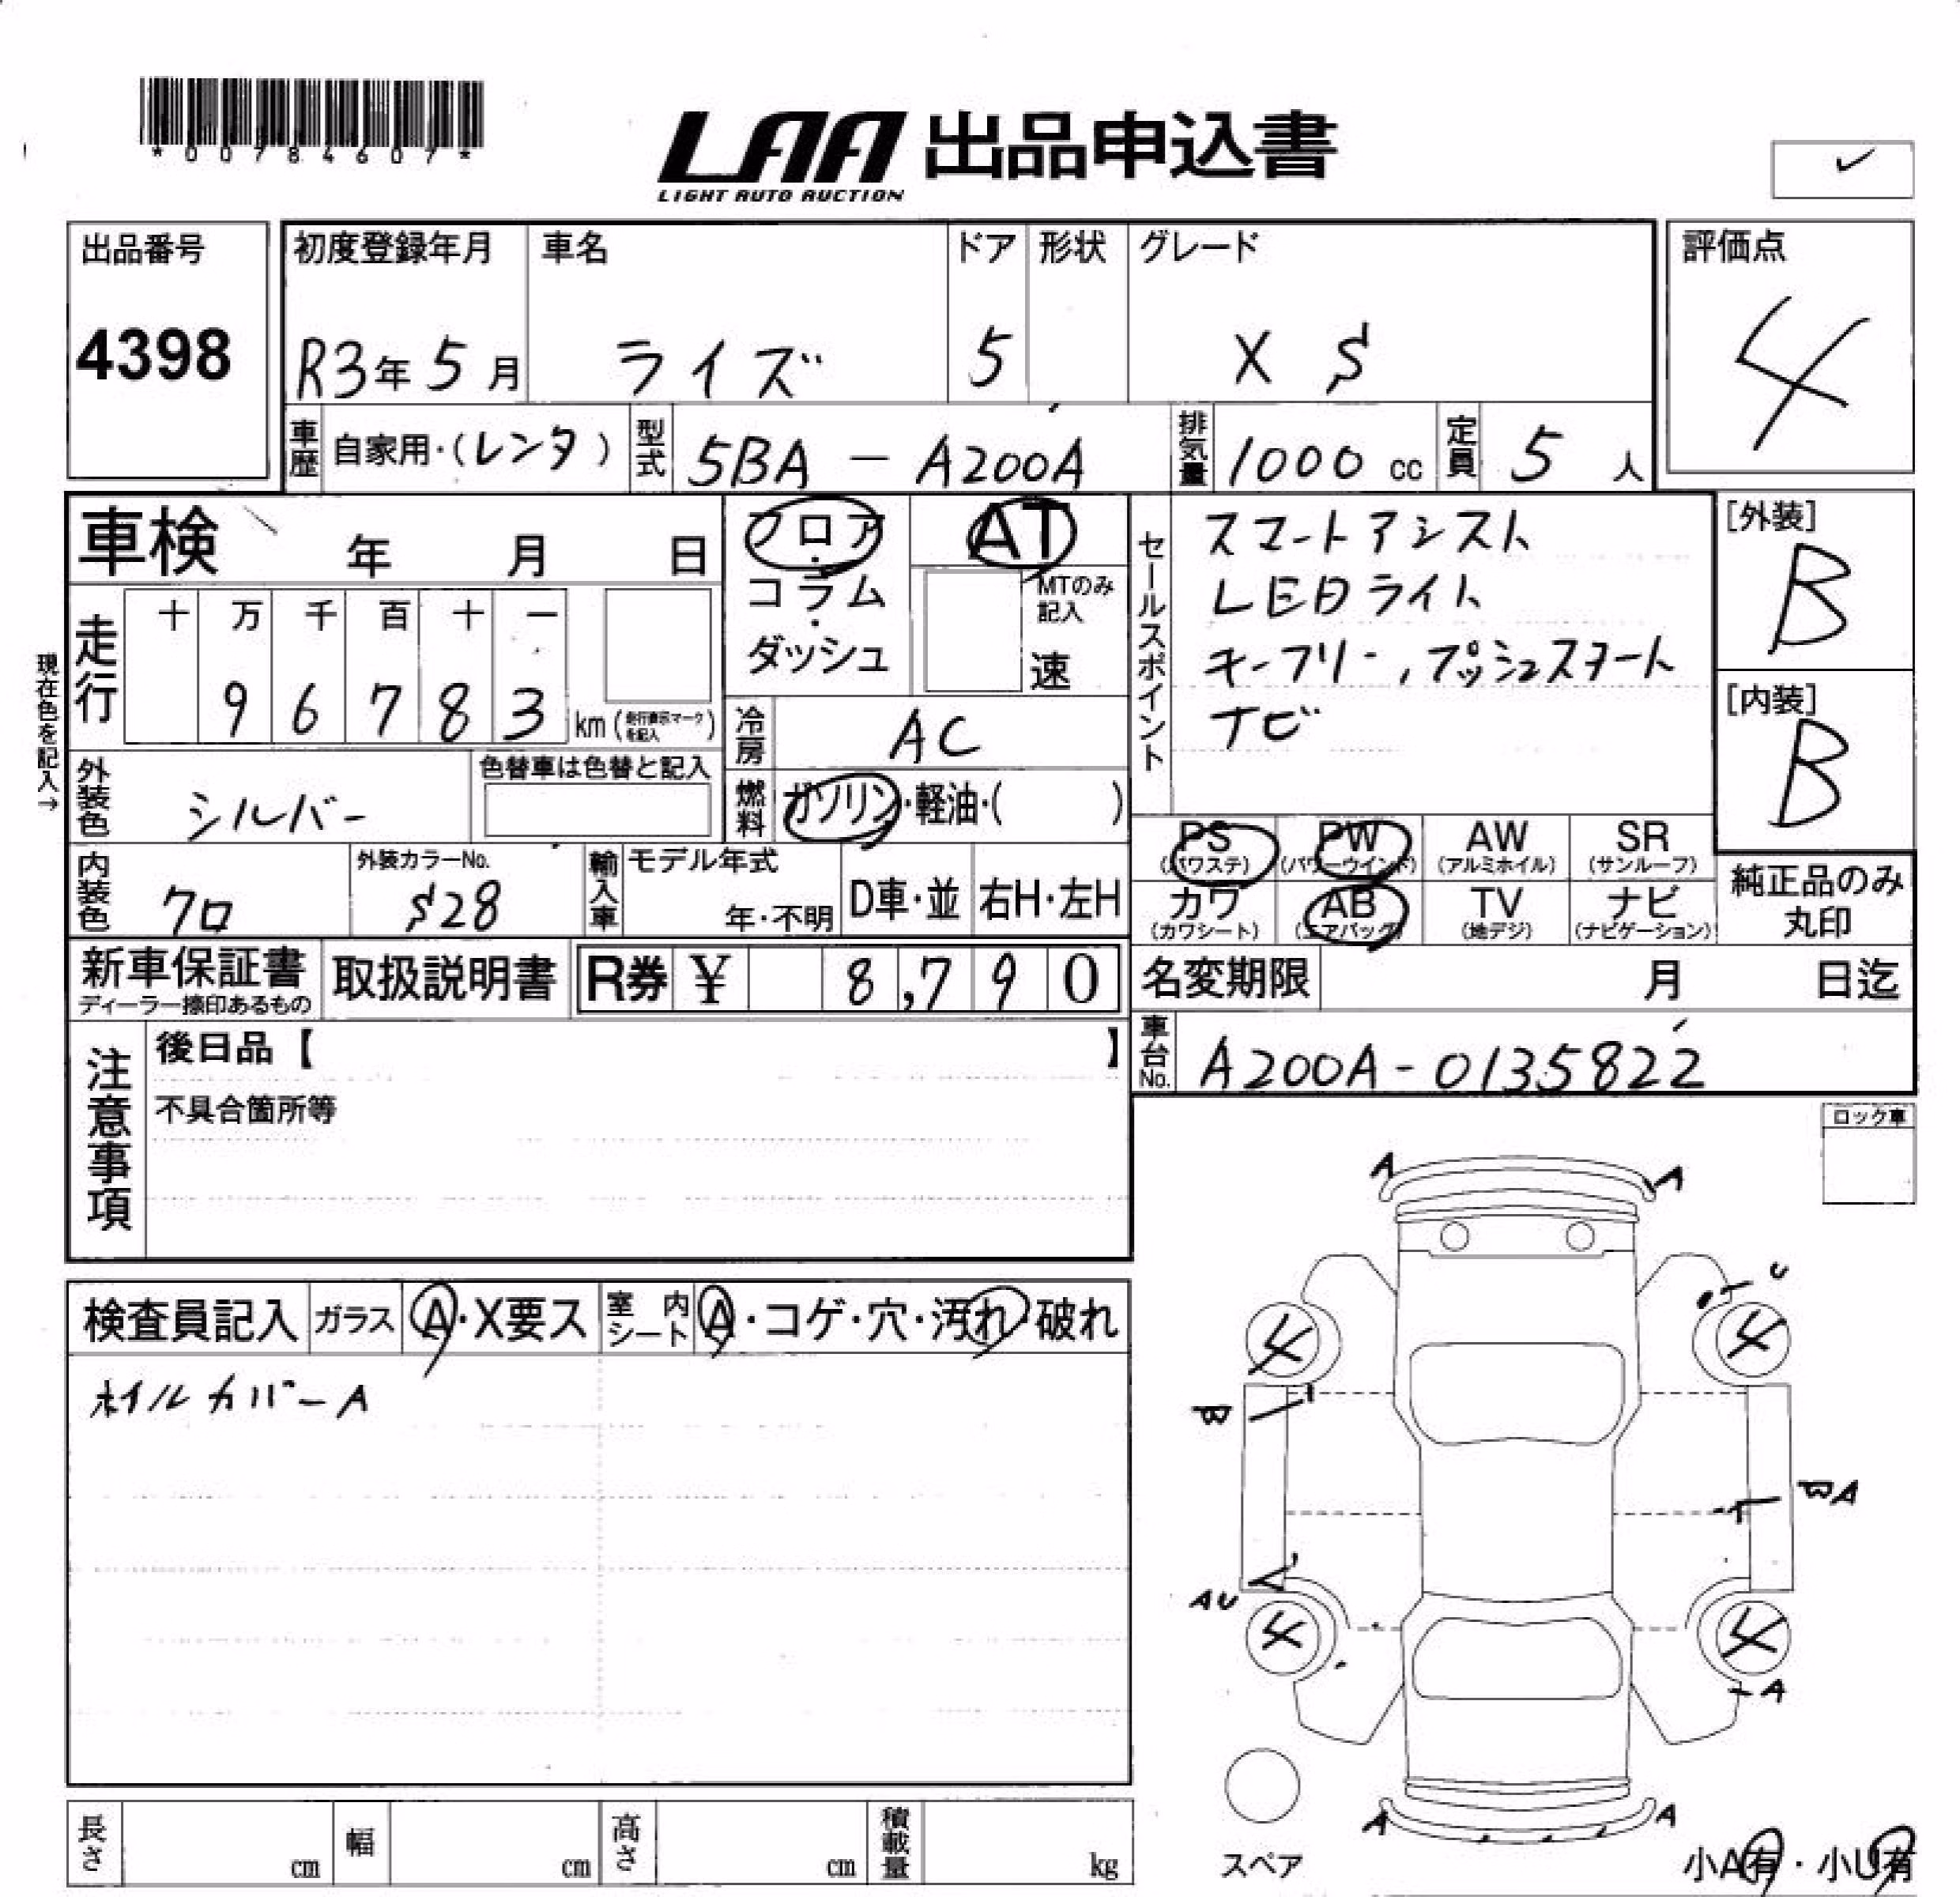 *00784607*
LAA 出品申込書
LIGHT AUTO AUCTION
出品番号
4398
初度登録年月
R3年 5月
車名
ライズ
ドア
5
形状
グレード
X S
評価点
4
車歴
自家用・(レンタ)
型式
5BA - A200A
排気量
1000 cc
定員
5 人
車検 年 月 日
フロア・コラム・ダッシュ
AT
MTのみ記入
速
セールスポイント
スマートアシスト
LEDライト
キーフリー,プッシュスタート
ナビ
[外装]
B
[内装]
B
現在色を記入→
走行
十 万 千 百 十 一
9 6 7 8 3 km(走行表示マークを記入)
冷房
AC
外装色
シルバー
色替車は色替と記入
燃料
ガソリン・軽油・( )
PS (パワステ)
PW (パワーウインド)
AW (アルミホイル)
SR (サンルーフ)
カワ (カワシート)
AB (エアバッグ)
TV (地デジ)
ナビ (ナビゲーション)
純正品のみ丸印
内装色
クロ
外装カラーNo.
S28
輸入車
モデル年式
年・不明
D車・並
右H・左H
新車保証書
ディーラー捺印あるもの
取扱説明書
R券 ¥ 8,790
名変期限 月 日迄
車台No.
A200A-0135822
注意事項
後日品【 】
不具合箇所等
ロック車
検査員記入
ガラス A・X要ス
室内シート A・コゲ・穴・汚れ・破れ
ホイルカバーA
A A
U
4 4
B
BA
AU
4 4
A
A A
スペア
小A有・小U有
長さ cm
幅 cm
高さ cm
積載量 kg